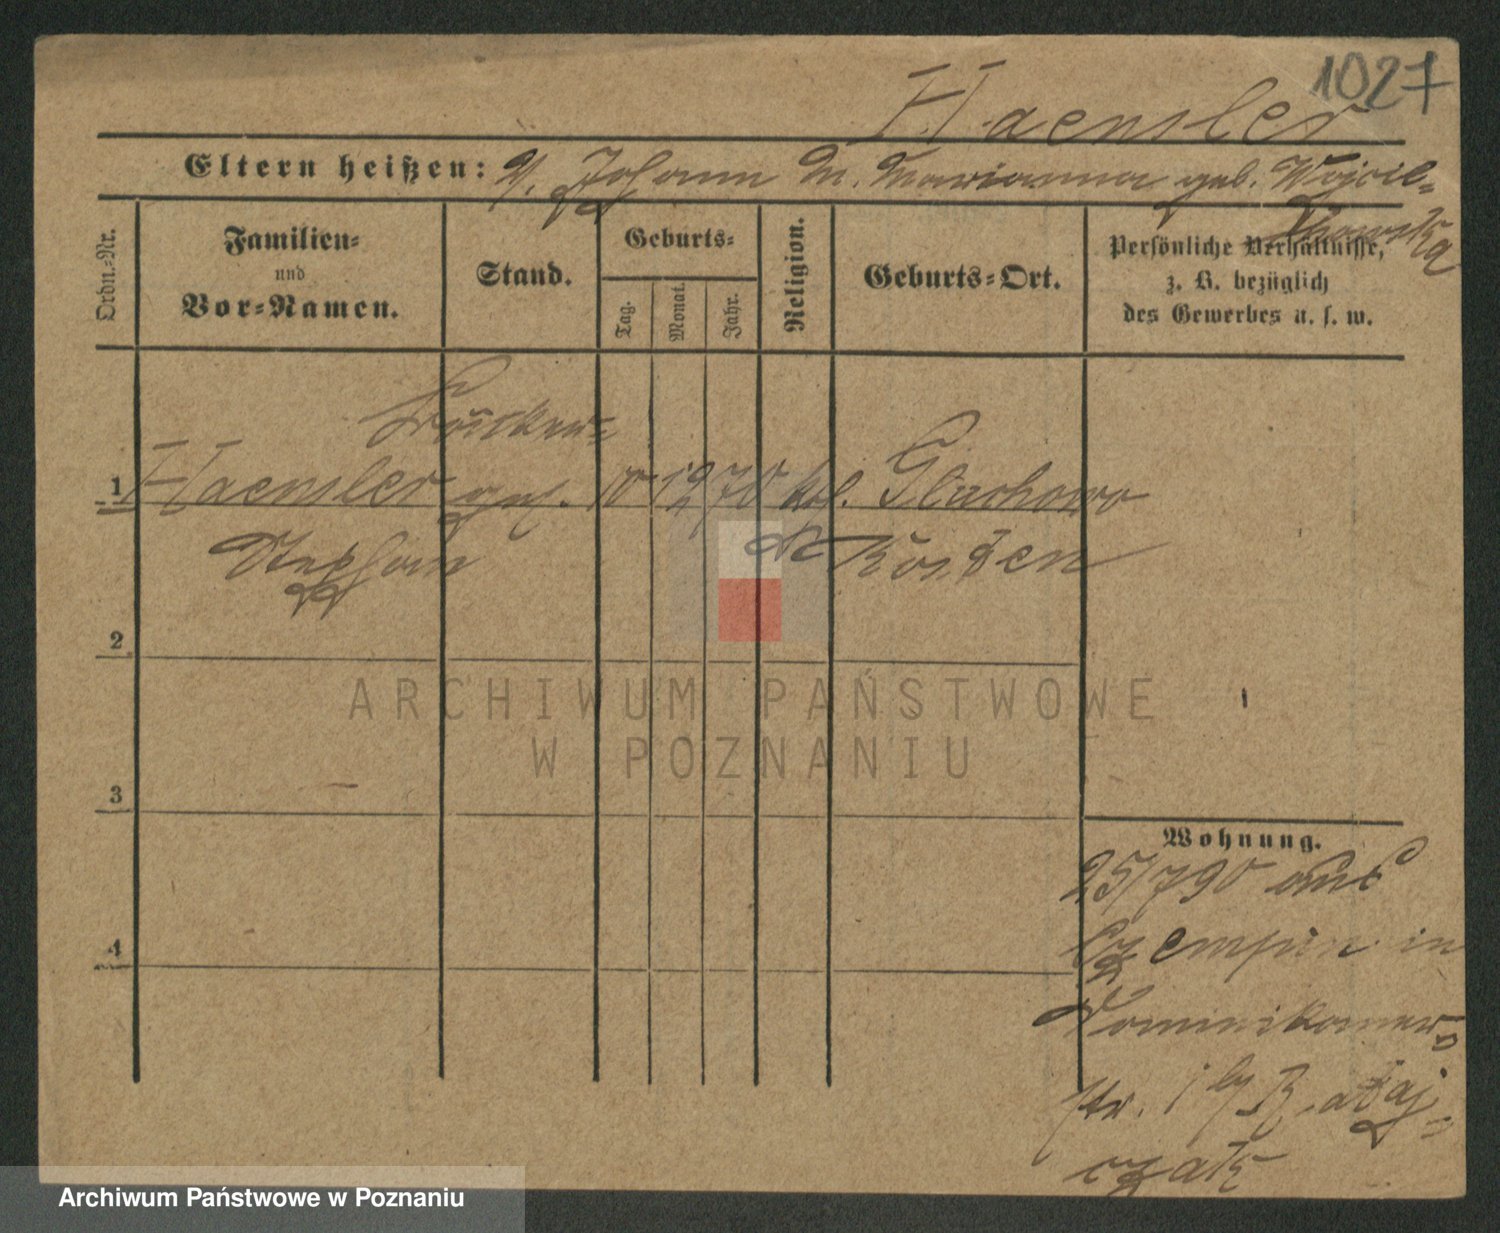 1027
Haensler
Eltern heißen: V. Johann M. Marianna geb. Wojcie-
chowska
Ordn.-Nr.
Familien-
und
Vor-Namen.
Stand.
Geburts-
Tag.
Monat.
Jahr.
Religion.
Geburts-Ort.
Persönliche Verhältnisse,
z. B. bezüglich
des Gewerbes u. s. w.
Bäcker-
1 Haensler ges. 10 12 70 kth. Gluchowo
Stephan Kr. Kosten
2
ARCHIWUM PAŃSTWOWE
W POZNANIU
3
Wohnung.
25/7 90 aus
4
Czempin in
Dominikaner-
str. 1 b/ Rataj-
czak
Archiwum Państwowe w Poznaniu